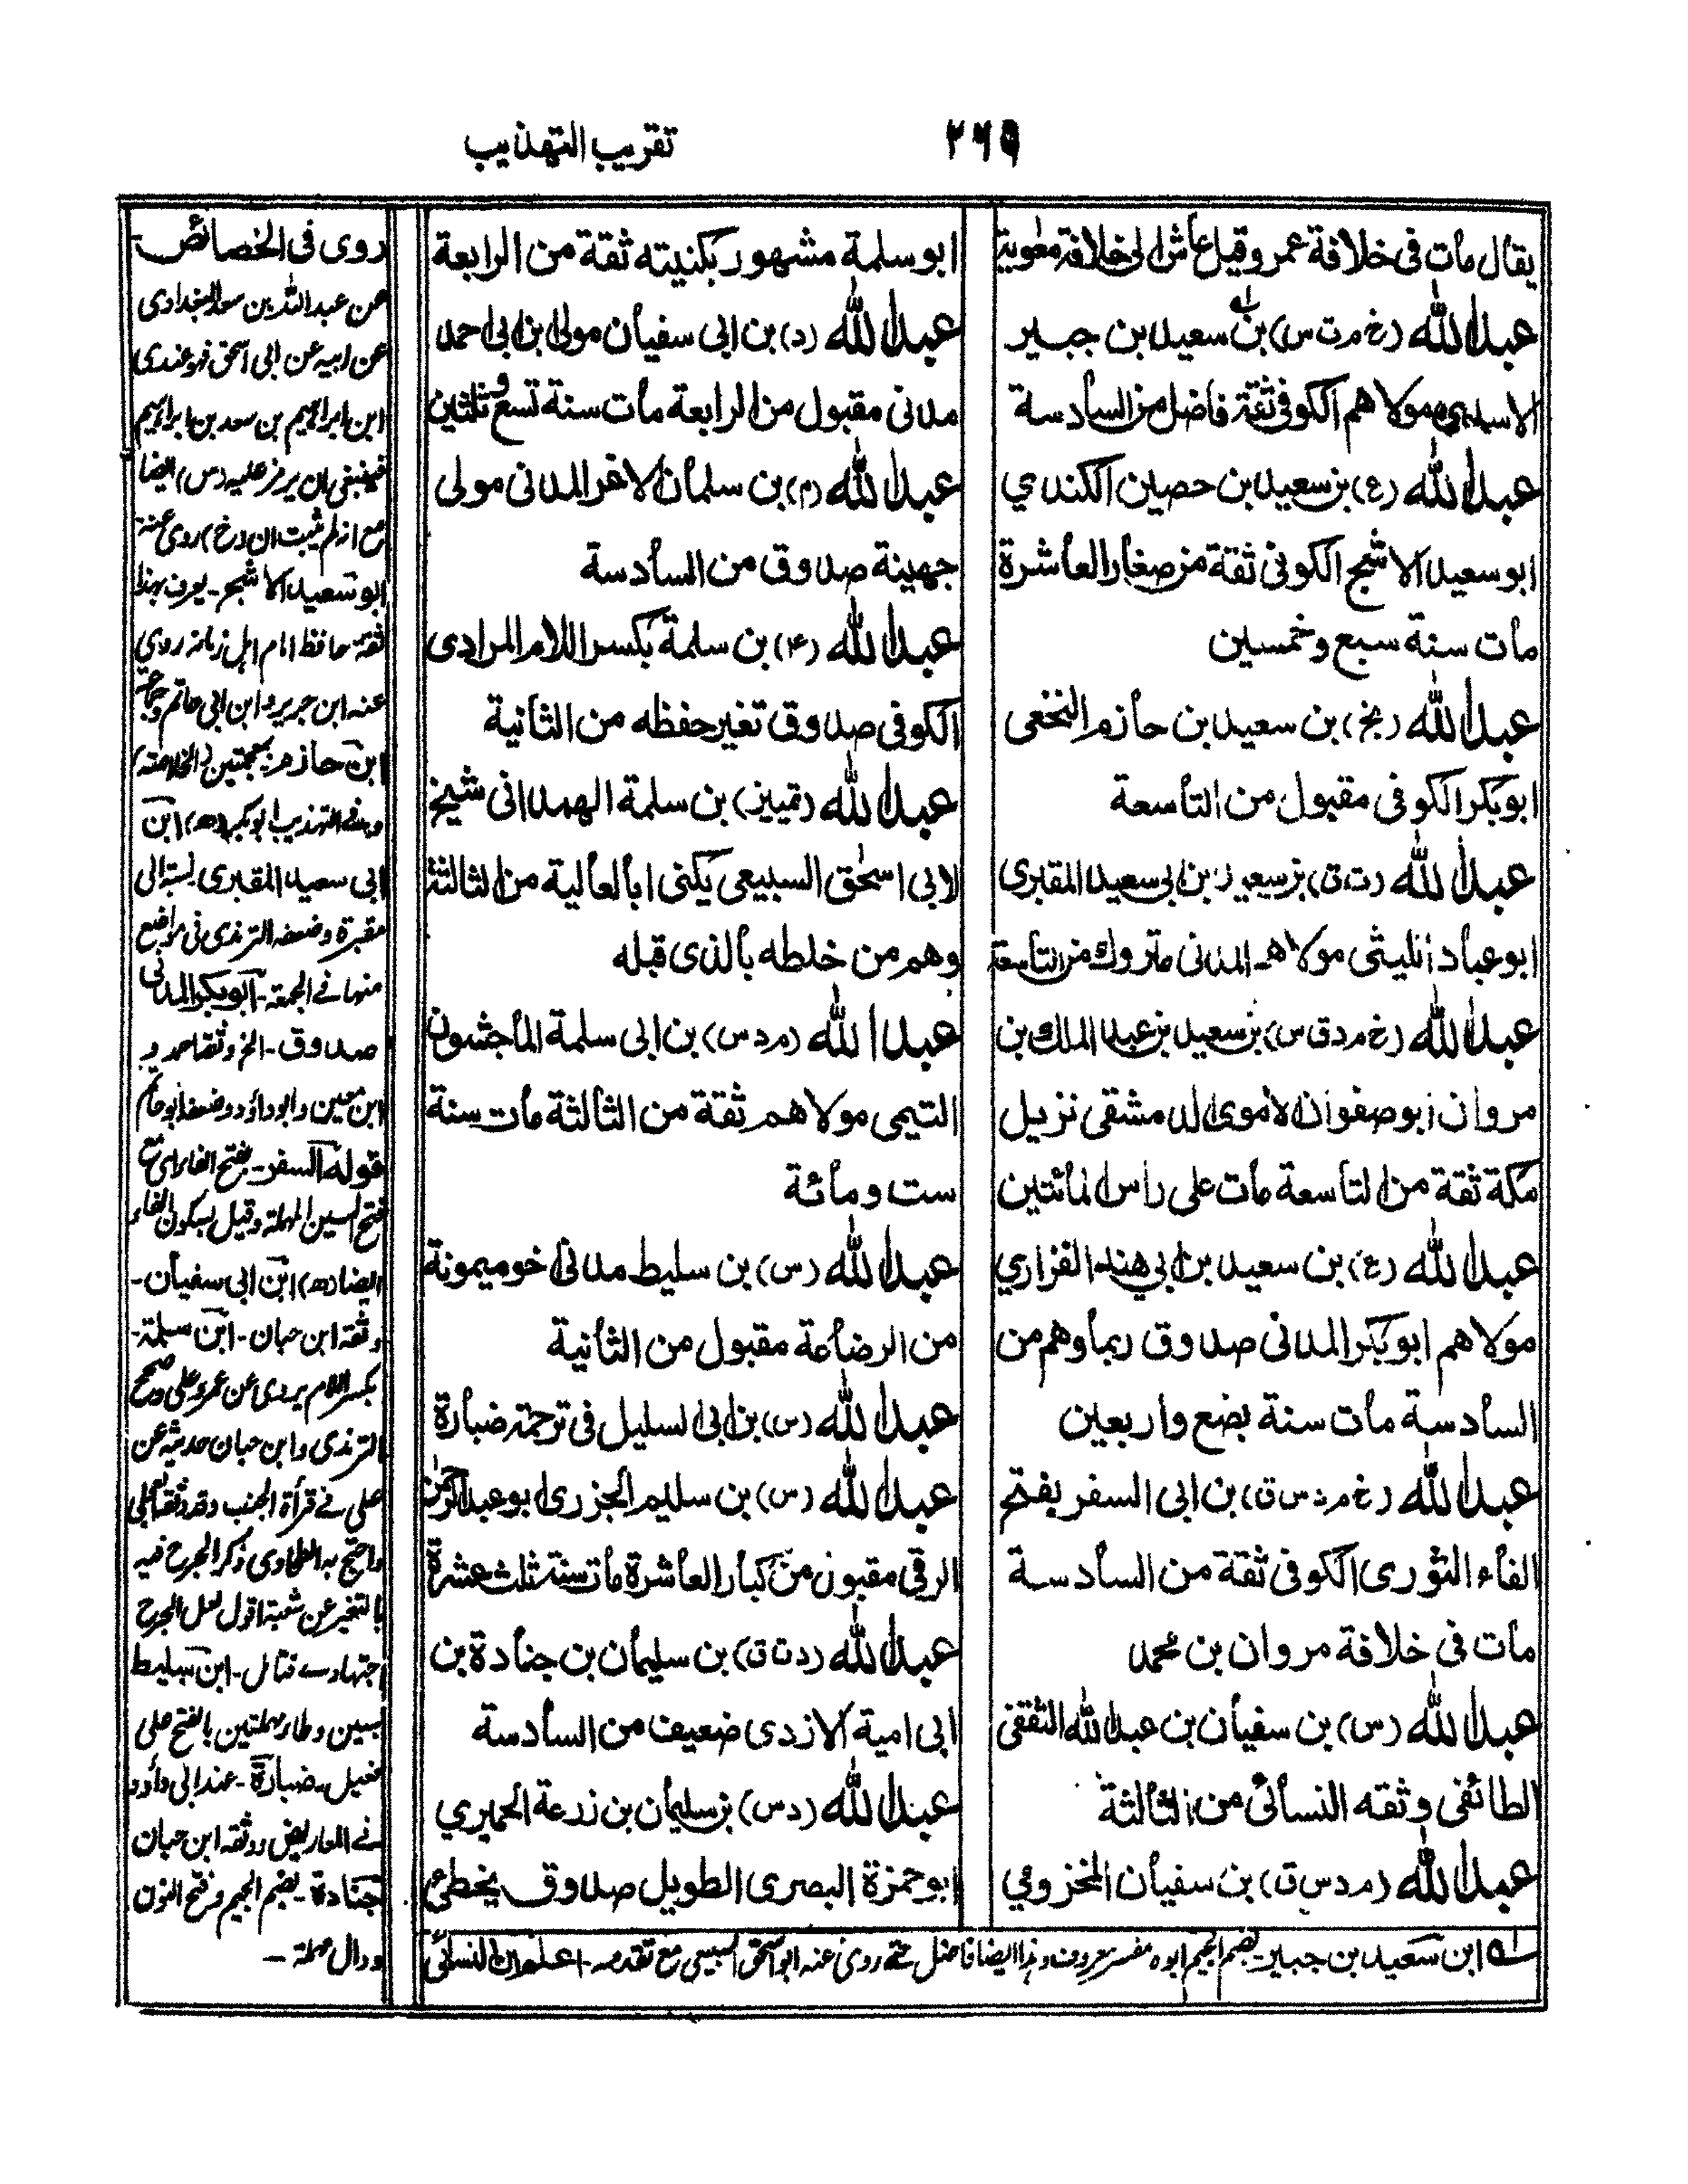 ٢٦٥
تقريب التهذيب
يقال مات فى خلافة عمر وقيل عاش الى خلافة معوية
عبد الله (خ م ت س) بن سعيد بن جبير
الاسدى مولاهم الكوفى ثقة فاضل من السادسة
عبد الله (ع) بن سعيد بن حصين الكندي
ابو سعيد الاشج الكوفى ثقة من صغار العاشرة
مات سنة سبع وخمسين
عبد الله (بخ) بن سعيد بن حازم النخعى
ابو بكر الكوفى مقبول من التاسعة
عبد الله (ت ق) بن سعيد بن ابى سعيد المقبري
ابو عباد الليثى مولاهم المدنى متروك من التاسعة
عبد الله (خ م د ق س) بن سعيد بن عبد الملك بن
مروان ابو صفوان الاموى الدمشقى نزيل
مكة ثقة من التاسعة مات على راس المائتين
عبد الله (ع) بن سعيد بن ابي هند الفزاري
مولاهم ابو بكر المدنى صدوق ربما وهم من
السادسة مات سنة بضع واربعين
عبد الله (خ م د س ق) بن ابى السفر بفتح
الفاء الثورى الكوفى ثقة من السادسة
مات فى خلافة مروان بن محمد
عبد الله (س) بن سفيان بن عبد الله الثقفى
الطائفى وثقه النسائى من الثالثة
عبد الله (م د س ق) بن سفيان المخزومي
ابو سلمة مشهور بكنيته ثقة من الرابعة
عبد الله (د) بن ابى سفيان مولى بن ابى احمد
مدنى مقبول من الرابعة مات سنة تسع وثلثين
عبد الله (م) بن سلمان الاغر المدنى مولى
جهينة صدوق من السادسة
عبد الله (٤) بن سلمة بكسر اللام المرادى
الكوفى صدوق تغير حفظه من الثانية
عبد الله (تمييز) بن سلمة الهمدانى شيخ
لابى اسحٰق السبيعى يكنى ابا العالية من الثالثة
وهم من خلطه بالذى قبله
عبد الله (م د س) بن ابى سلمة الماجشون
التيمى مولاهم ثقة من الثالثة مات سنة
ست ومائة
عبد الله (س) بن سليط مدنى اخو ميمونة
من الرضاعة مقبول من الثانية
عبد الله (س) بن ابى السليل فى ترجمة ضبارة
عبد الله (س) بن سليم الجزرى ابو عبد الرحمٰن
الرقى مقبول من كبار العاشرة مات سنة ثلث عشرة
عبد الله (د ت ق) بن سليمان بن جنادة بن
ابى امية الازدى ضعيف من السادسة
عبد الله (د س) بن سليمان بن زرعة الحميري
ابو حمزة البصرى الطويل صدوق يخطئ
روى فى الخصائص
عن عبد الله بن سعد البغدادى
عن ابيه عن ابى اسحق فهو عندى
ابن ابراهيم بن سعد بن ابراهيم
فينبغى ان يرمز عليه (س) ايضا
مع انه لم يثبت ان (خ) روى عنه
ابو سعيد الاشج - يعرف بهذا
ثقة حافظ امام اهل زمانه روى
عنه ابن جرير وابن ابى حاتم وجماعة
ابن حازم بمعجمتين (الخلاصة)
وفى التهذيب ابو بكير (ھ) ابن
ابى سعيد المقبرى نسبة الى
مقبرة وضعفه الترمذى فى مواضع
منها فى الجمعة - ابو بكر المدنى
صدوق - الخ وثقه احمد و
ابن معين وابو داؤد وضعفه ابو حاتم
قوله السفر - بفتح الفاء اى مع
فتح السين المهملة وقيل بسكون الفاء
ايضا (ھ) ابن ابى سفيان -
وثقه ابن حبان - ابن سلمة -
بكسر اللام يروى عن عمر وعلى وصحح
الترمذى وابن حبان حديثه عن
على فى قرأة الجنب وقد وثقه العجلى
واحتج به الطحاوى وذكر الجرح فيه
بالتغير عن شعبة اقول لعل الجرح
اجتهادى فتأمل - ابن سليط
بسين وطاء مهملتين بالفتح على
فعيل - ضبارة - عند ابى داؤد
فى المعاريض ووثقه ابن حبان
جنادة - بضم الجيم وفتح النون
ودال مهملة -
له ابن سعيد بن جبير - بضم الجيم ابوه مفسر معروف وهذا ايضا فاضل حتى روى عنه ابو اسحق السبيعى مع تقدمه - اعلم ان النسائى